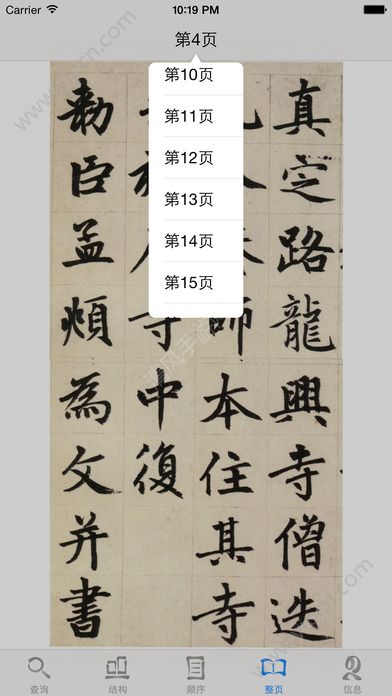 Carrier 10:19 PM
第4页
第10页
第11页
第12页
第13页
第14页
第15页
真定路龍興寺僧迭
師本住其寺
寺中復
勅臣孟頫為文并書
查询 结构 顺序 整页 信息